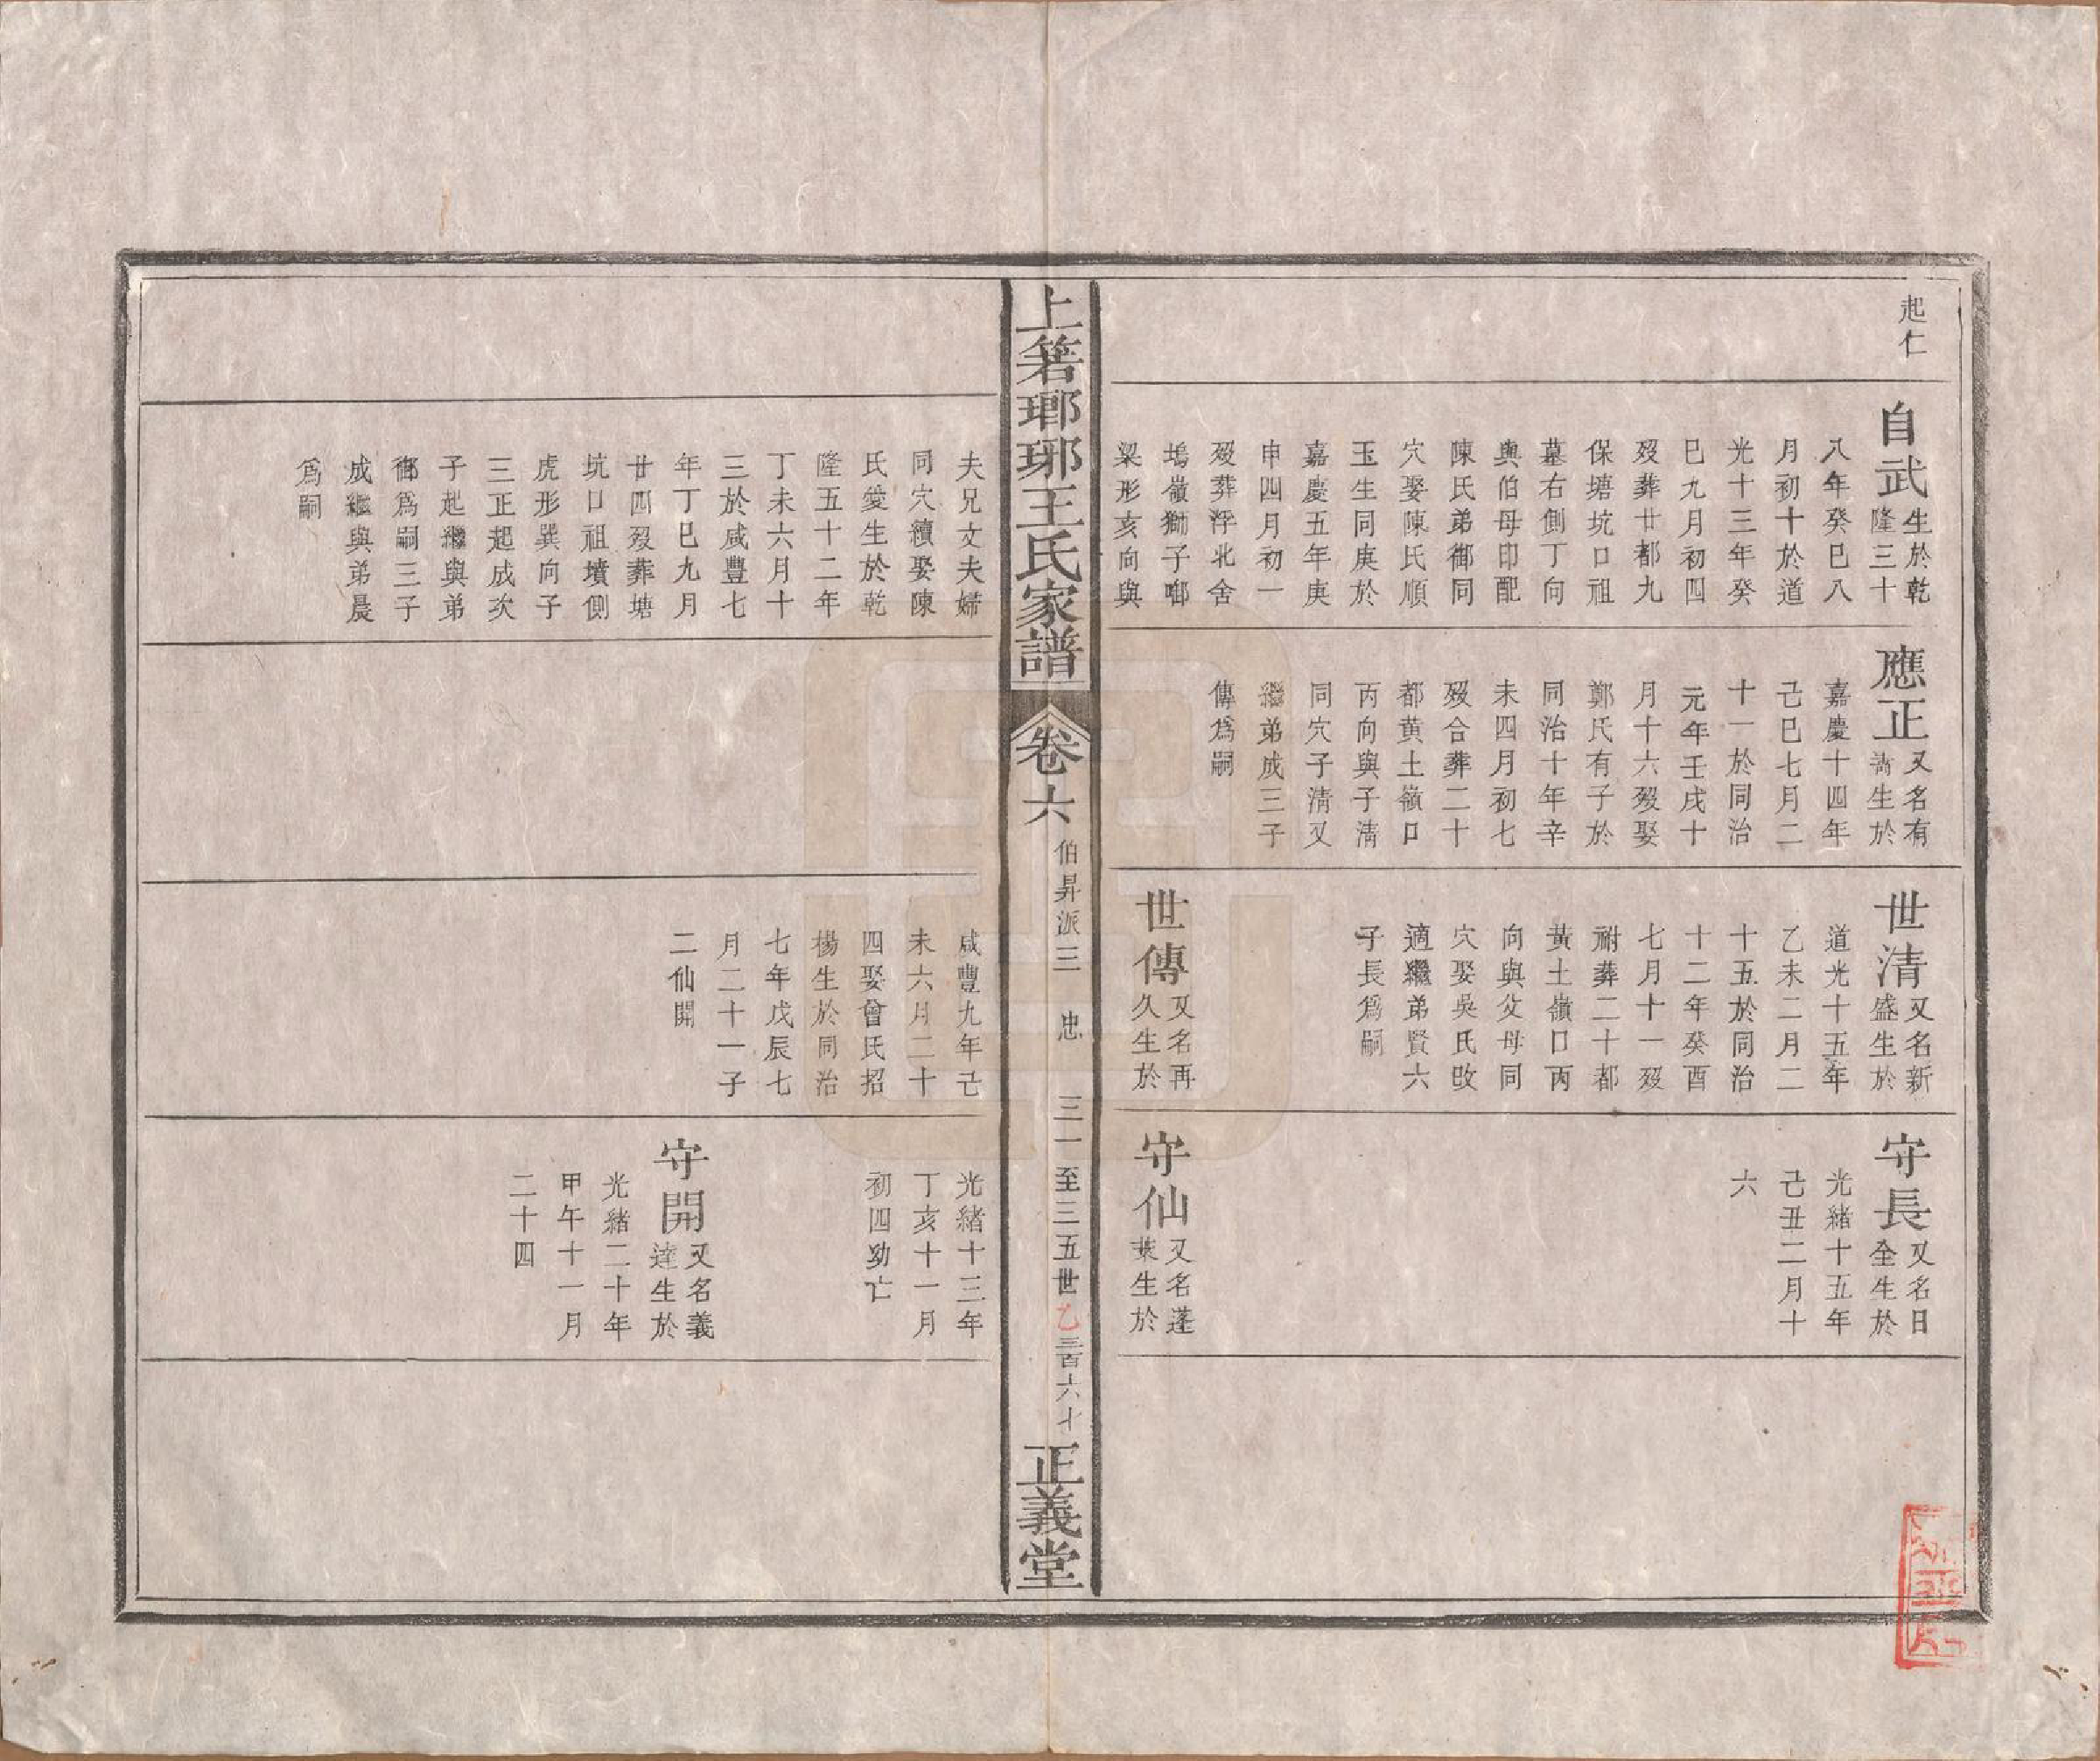 起仁
自武生於乾
隆三十
八年癸巳八
月初十於道
光十三年癸
巳九月初四
歿葬廿都九
保塘坑口祖
墓右側丁向
與伯母印配
陳氏弟御同
穴娶陳氏順
玉生同庚於
嘉慶五年庚
申四月初一
歿葬浮北舍
塢嶺獅子啣
梁形亥向與
應正又名有
壽生於
嘉慶十四年
己巳七月二
十一於同治
元年壬戌十
月十六歿娶
鄭氏有子於
同治十年辛
未四月初七
歿合葬二十
都黄土嶺口
丙向與子清
同穴子清又
繼弟成三子
傳爲嗣
世清又名新
盛生於
道光十五年
乙未二月二
十五於同治
十二年癸酉
七月十一歿
祔葬二十都
黃土嶺口丙
向與父母同
穴娶吳氏改
適繼弟賢六
子長爲嗣
世傳又名再
久生於
守長又名日
全生於
光緒十五年
己丑二月十
六
守仙又名蓬
萊生於
上箬瑯琊王氏家譜
卷六
伯昇派三 忠 三一至三五世乙三百六十
正義堂
夫兄文夫婦
同穴續娶陳
氏愛生於乾
隆五十二年
丁未六月十
三於咸豐七
年丁巳九月
廿四歿葬塘
坑口祖墳側
虎形巽向子
三正起成次
子起繼與弟
御爲嗣三子
成繼與弟晨
爲嗣
咸豐九年己
未六月二十
四娶曾氏招
楊生於同治
七年戊辰七
月二十一子
二仙開
光緒十三年
丁亥十一月
初四幼亡
守開又名義
達生於
光緒二十年
甲午十一月
二十四